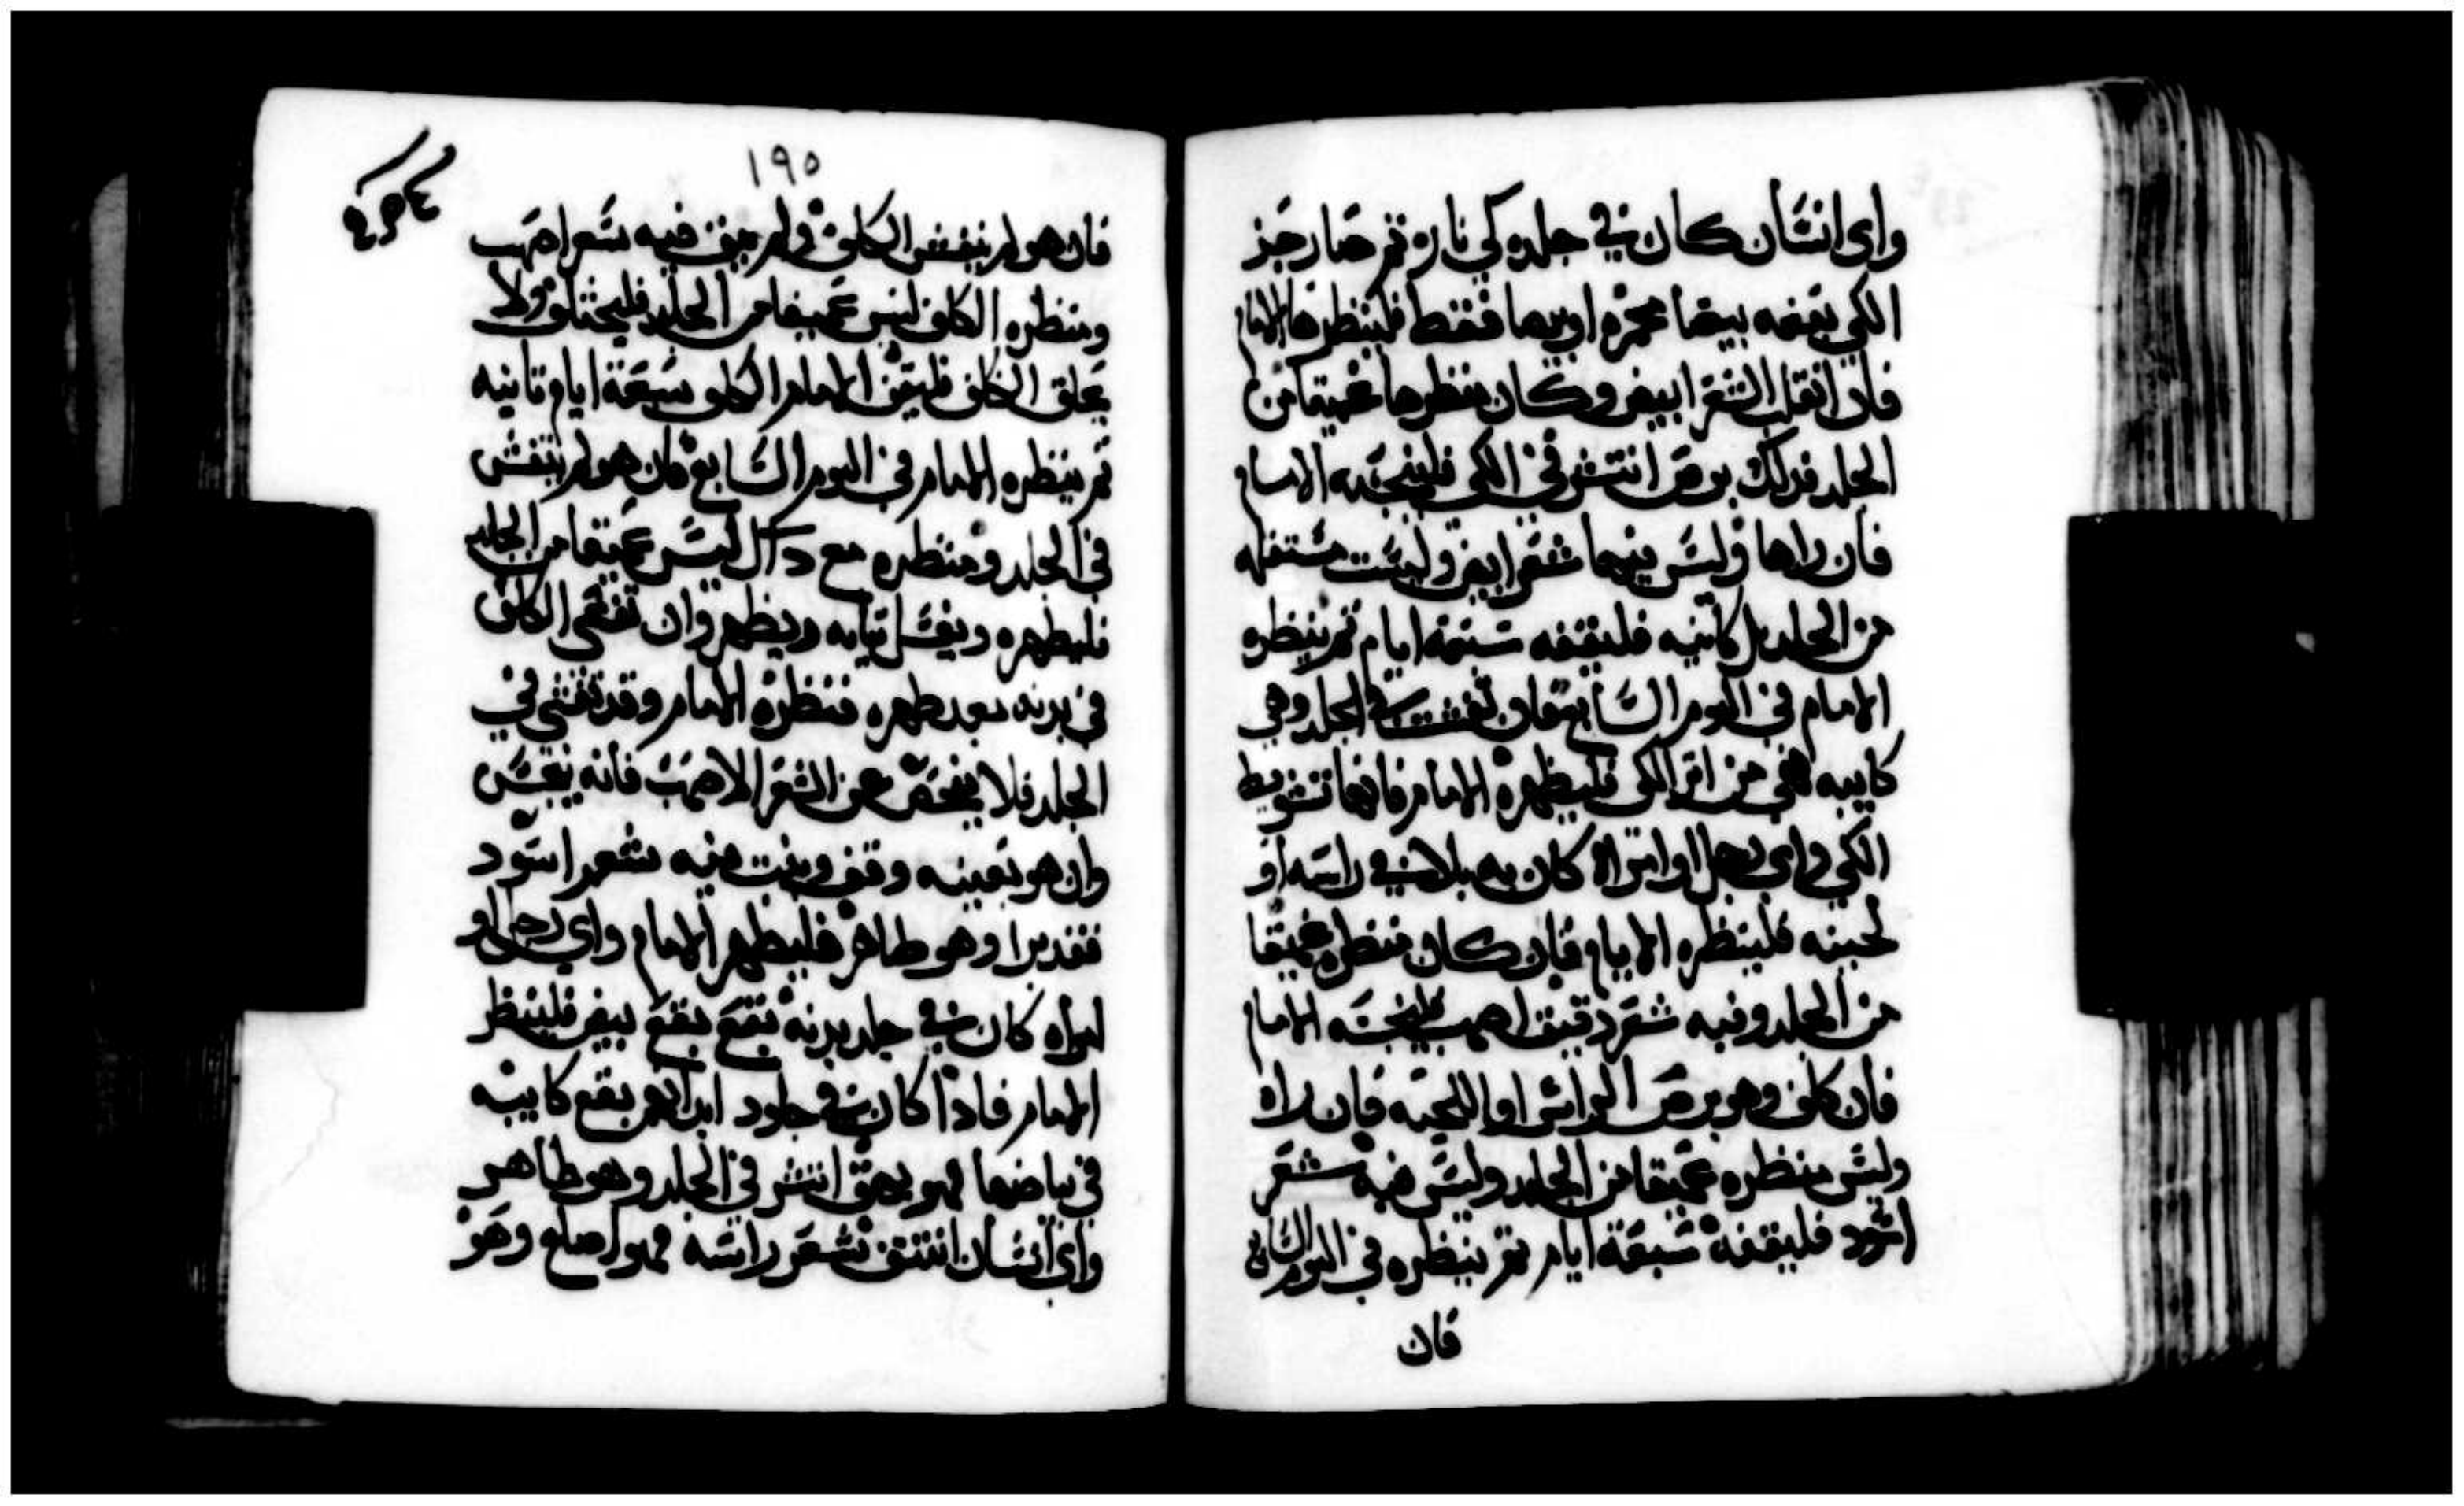 واى انسان كان في جلده كي نار ثم صار جز
الكي بقعه بيضا محمره او بيضا فقط فلينظرها الامام
فان انقلب الشعر ابيض وكان منظرها عميقا من
الجلد فذلك برص انتشر في الكي فلينجسه الامام
فان راها وليس فيها شعر ابيض وليست مستفله
من الجلد بل كابيه فليقفه سبعة ايام ثم ينظره
الامام في اليوم السابع فان تفشت في الجلد وهي
كابيه فهي من اثر الكي فليطهره الامام فانها تشويط
الكي واي رجل او امراة كان به بلا في راسه او
لحيته فلينظره الامام فان كان منظره عميقا
من الجلد وفيه شعر دقيق اصهب فلينجسه الامام
فان كلف وهو برص الراس او اللحيه فان راه
وليس منظره عميقا من الجلد وليس فيه شعر
اسود فليقفه سبعة ايام ثم ينظره في اليوم السابع
فان
١٩٥
فان هو لم يتفش الكلف ولم يبق فيه شعر اصهب
ومنظره الكلف ليس عميقا من الجلد فليحتلق ولا
يحلق الكلف فليقف الامام الكلف سبعة ايام تانيه
ثم ينظره الامام في اليوم السابع فان هو لم يتفش
في الجلد ومنظره مع ذاك ليس عميقا من الجلد
فليطهره ويغسل ثيابه ويطهر وان تفشى الكلف
في بدنه بعد طهره فنظره الامام وقد تفشى في
الجلد فلا يفحص عن الشعر الاصهب فانه نجس
وان هو بعينه وقف وينبت فيه شعر اسود
فقد برا وهو طاهر فليطهر الامام واي رجل او
امراه كان في جلد بدنه بقع بقع بيض فلينظر
الامام فاذا كان في جلود ابدانهم بقع كابيه
في بياضها فهو بهق انتشر في الجلد وهو طاهر
واي انسان انتتف شعر راسه فهو اصلع وهو